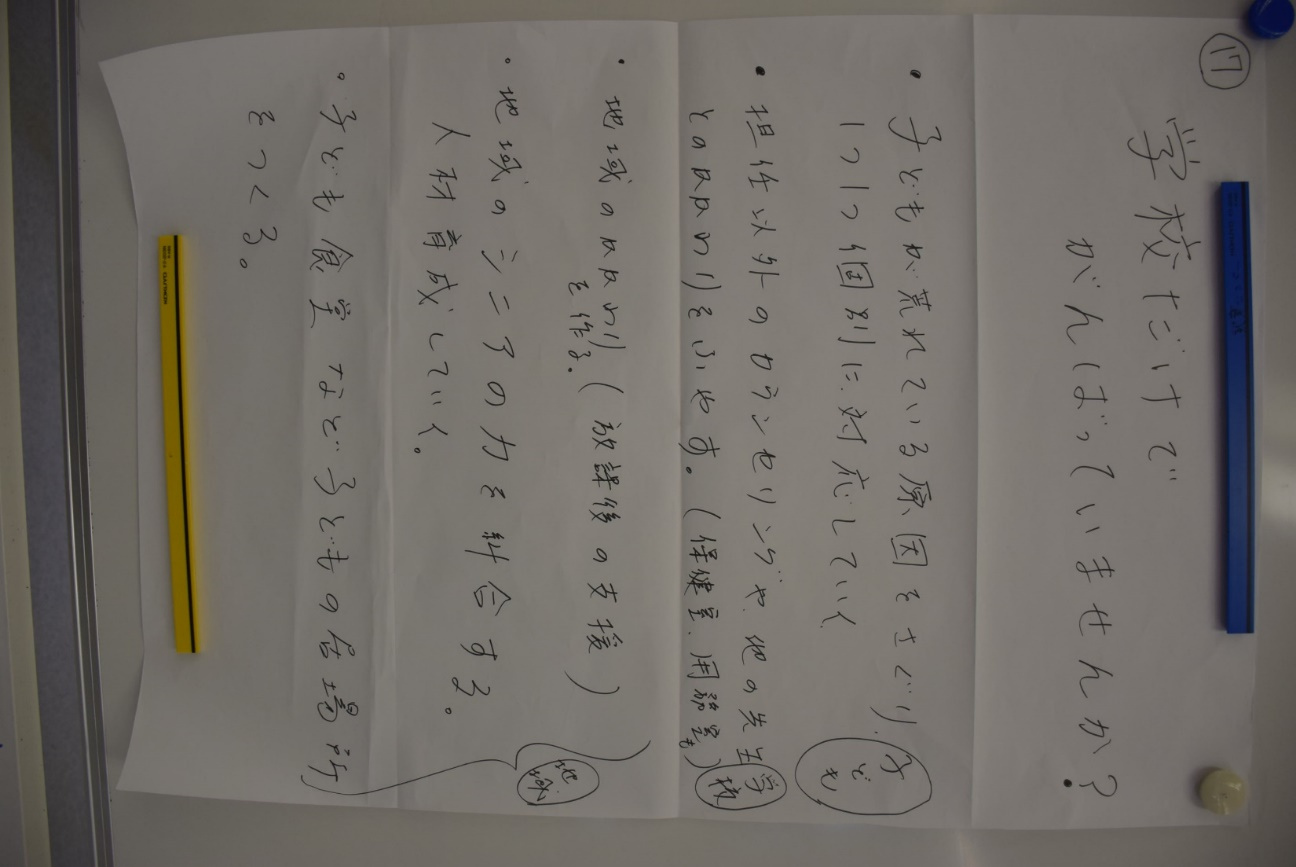 ⑰
学校だけで
がんばっていませんか?
・子どもが荒れている原因をさぐり、
1つ1つ個別に対応していく
子ども
・担任以外のカウンセリングや、他の先生
とのかかわりをふやす。(保健室、用務室も)
学校
・地域のかかわり(放課後の支援)
を作る。
・地域のシニアの力を糾合する。
人材育成していく。
・子ども食堂など子どもの居場所
をつくる。
地域